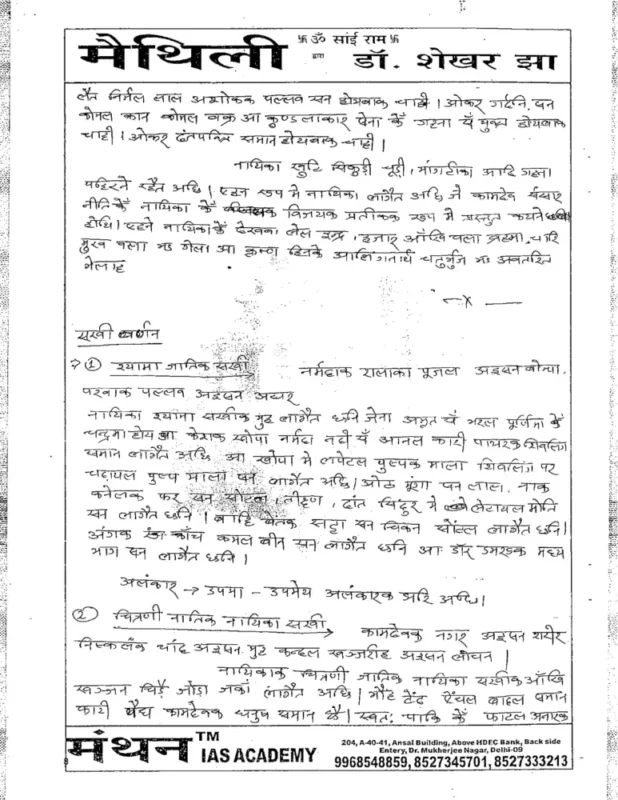 卐 ॐ सांई राम 卐
मैथिली द्वारा डॉ. शेखर झा
निर्मल लाल अशोकक पल्लव सन होयबाक चाही। ओकर गर्दनि
कोमल कान कोमल वक्र आ कुण्डलाकार गहना सँ युक्त होयबाक
चाही। ओकर दंतपंक्ति समान होयबाक चाही।
नायिका चूड़ी, मांगटीका आदि गहना
पहिरने रहैत अछि। एहन रूप मे नायिका लागैत अछि जे कामदेव संसार
नायिका के विजयक प्रतीकक रूप मे प्रस्तुत कयने
होथि। एहने नायिका के देखबा लेल इन्द्र, हजार आँखि वला ब्रह्मा, चारि
मुख वला भऽ गेला आ कृष्ण हिनके आलिंगनार्थ चतुर्भुज भऽ अवतरित
भेलाह
—x—
सखी वर्णन
→ ① श्यामा जातिक सखी → नर्मदाक पूजल अइसन
पल्लव अइसन अधर
नायिका श्यामा सखीक मुह लागैत छनि जेना अमृत सँ भरल पूर्णिमा के
चन्द्रमा होय आ केशक खोपा नर्मदा नदी सँ आनल कारी पाथरक शिवलिंग
समान लागैत अछि आ खोपा मे लपेटल पुष्पक माला शिवलिंग पर
चढ़ायल पुष्प माला सन लागैत अछि। ओठ मूंगा सन लाल, नाक
कनैलक फर सन तीक्ष्ण, दांत सिंदुर मे लेटायल मोति
सन लागैत छनि। बाँहि बेतक सट्टा सन चिकन लागैत छनि।
अंगक रंग काँच कमल सन लागैत छनि आ डाँर डमरूक मध्य
भाग सन लागैत छनि।
अलंकार → उपमा - उपमेय अलंकारक झरि अछि।
② चित्रणी जातिक नायिका सखी → कामदेवक नगर अइसन शरीर
निष्कलंक चाँद अइसन मुह कन्दल खञ्जरीट अइसन लोचन।
नायिकाक चित्रणी जातिक नायिका सखीक आँखि
खञ्जन चिड़ै जोड़ा जकां लागैत अछि। समान
कारी कामदेवक धनुष समान छै। स्वतः
मंथन TM
IAS ACADEMY
204, A-40-41, Ansal Building, Above HDEC Bank, Back side
Entery, Dr. Mukherjee Nagar, Delhi-09
9968548859, 8527345701, 8527333213
8